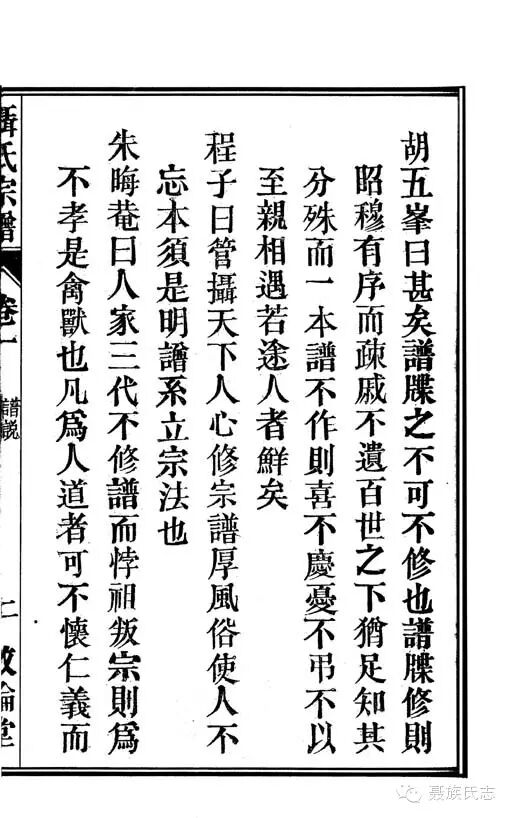 胡五峯曰甚矣譜牒之不可不修也譜牒修則
昭穆有序而疎戚不遺百世之下猶足知其
分殊而一本譜不作則喜不慶憂不弔不以
至親相遇若途人者鮮矣
程子曰管攝天下人心修宗譜厚風俗使人不
忘本須是明譜系立宗法也
朱晦菴曰人家三代不修譜而悖祖叛宗則爲
不孝是禽獸也凡爲人道者可不懷仁義而
聶氏宗譜
卷一
譜說
二
敦倫堂
聂族氏志